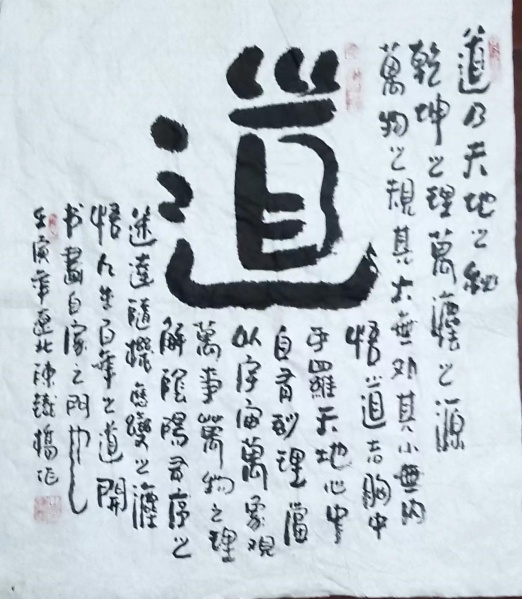 道
道乃天地之秘
乾坤之理萬法之源
萬物之規其大無外其小無內
悟道者胸中
于羅天地心中
自有妙理當
以宇宙萬象觀
萬事萬物之理
解陰陽有序之
迷達隨機應變之法
悟人生百年之道開
书畫自家之門也
壬寅年遼北陳鐵楊作